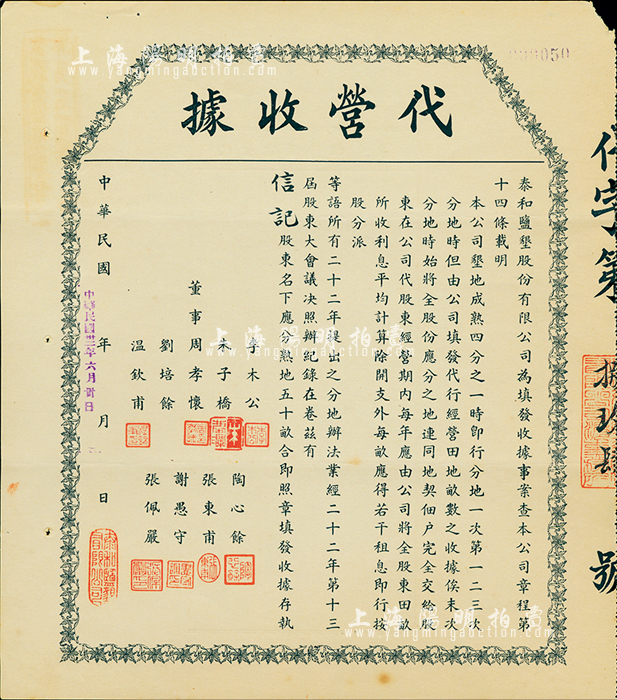 代營收據
泰和鹽墾股份有限公司為填發收據事案查本公司章程第
十四條載明
本公司墾地成熟四分之一時即行分地一次第一二三次
分地時但由公司填發代行經營田地畝數之收據俟末次
分地時始將全股份應分之地連同地契佃戶完全交給股
東在公司代股東經營期內每年應由公司將全股東田畝
所收利息平均計算除開支外每畝應得若干租息即行按
股分派
等語所有二十二年提出之分地辦法業經二十二年第十三
屆股東大會議决照辦紀錄在卷茲有
信記股東名下應分熟地五十畝合即照章填發收據存執
董事
李木公
朱子橋
周孝懷
劉培餘
溫欽甫
陶心餘
張東甫
謝愚守
張佩嚴
中華民國 年 月 日
中華民國廿三年六月 日
代字第
捌玖肆
號
050
上海陽明拍賣
www.yangmingauction.com
上海陽明拍賣
www.yangmingauction.com